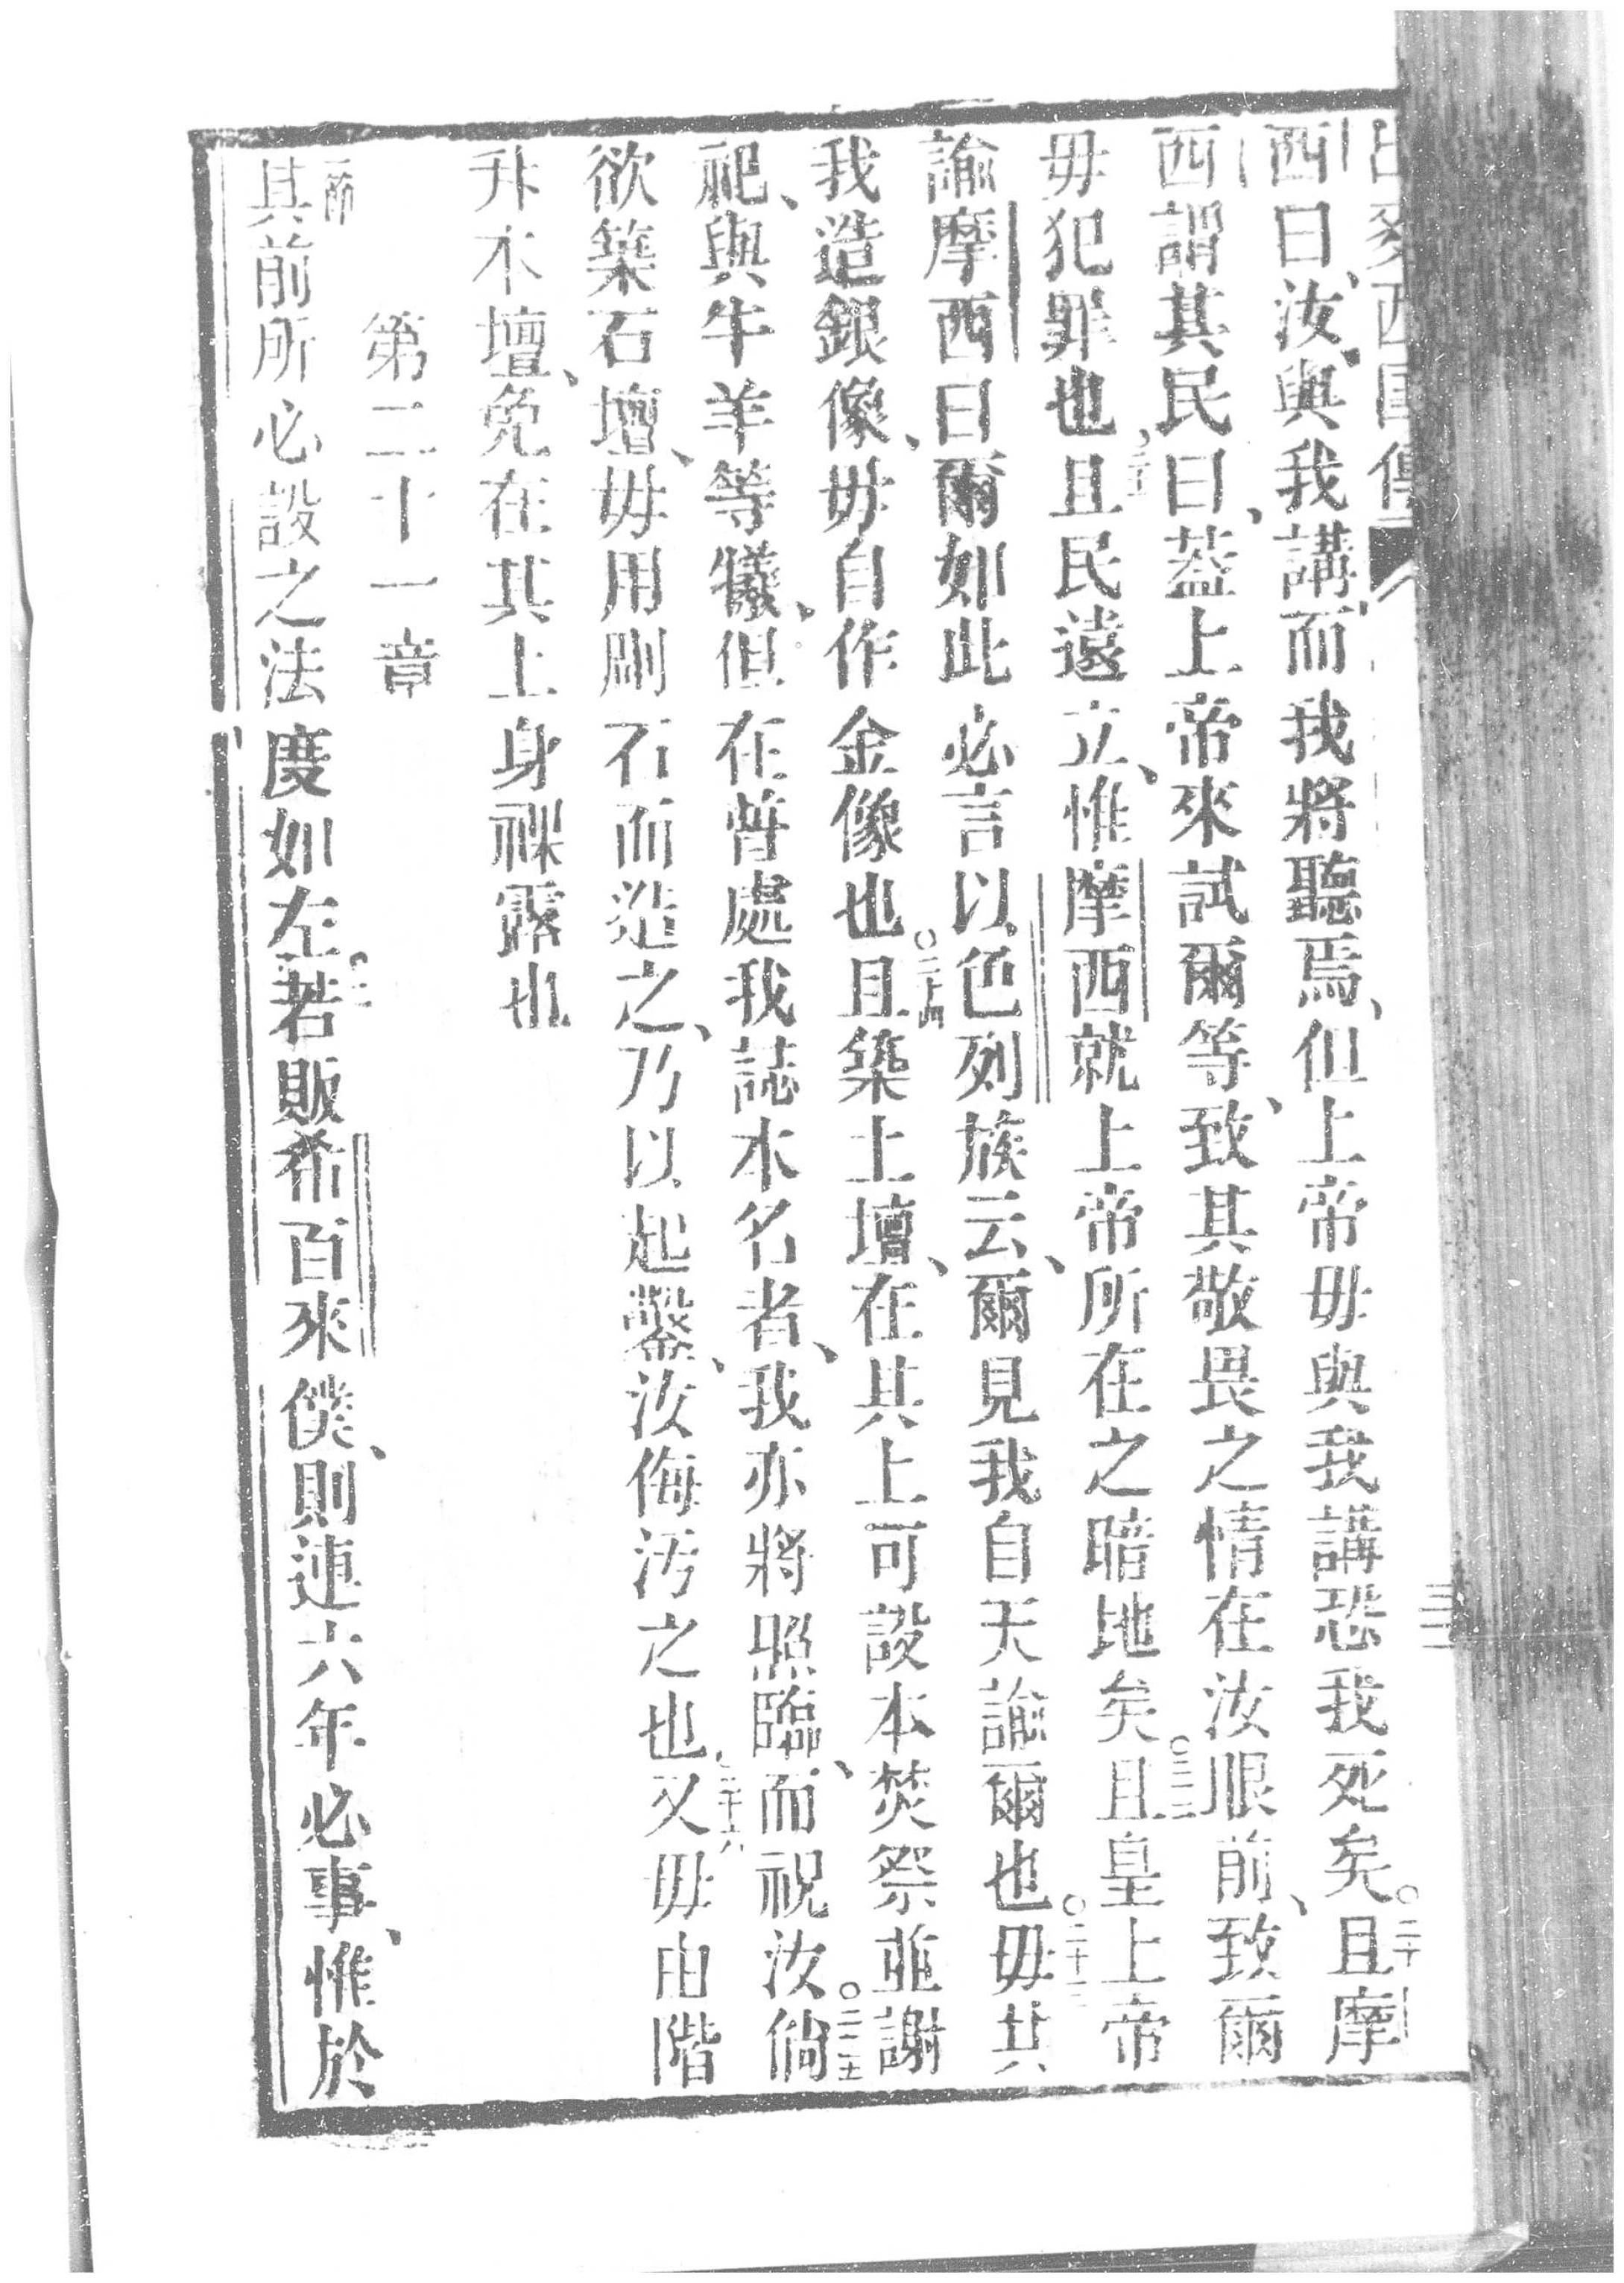 出麥西國傳
西曰、汝與我講、而我將聽焉、但上帝毋與我講恐我死矣。○二十且摩
西謂其民曰、蓋上帝來試爾等、致其敬畏之情在汝眼前、致爾
毋犯罪也、且民遠立、惟摩西就上帝所在之暗地矣○二十二且皇上帝
諭摩西曰爾如此必言以色列族云、爾見我自天諭爾也○二十三毋共
我造銀像、毋自作金像也○二十四且築土壇、在其上可設本焚祭並謝
祀、與牛羊等犧、但在普處我誌本名者、我亦將照臨、而祝汝○二十五倘
欲築石壇、毋用剛石而造之、乃以起鑿、汝侮汚之也、二十六又毋由階
升本壇、免在其上身裸露也
第二十一章
一節其前所必設之法度如左○二若販希百來僕、則連六年必事、惟於